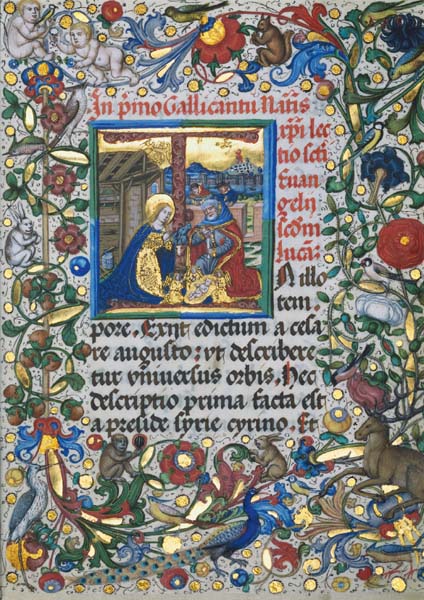 In p̄mo Gallicantu Nat̄is
xp̄i lec
tio sc̄ti
Euan
gelij
scdm
lucā:
In illo
tem
pore. Exijt edictum a cesa
re augusto: vt describere
tur vniuersus orbis. Hec
descriptio prima facta est
a preside syrie cyrino. Et